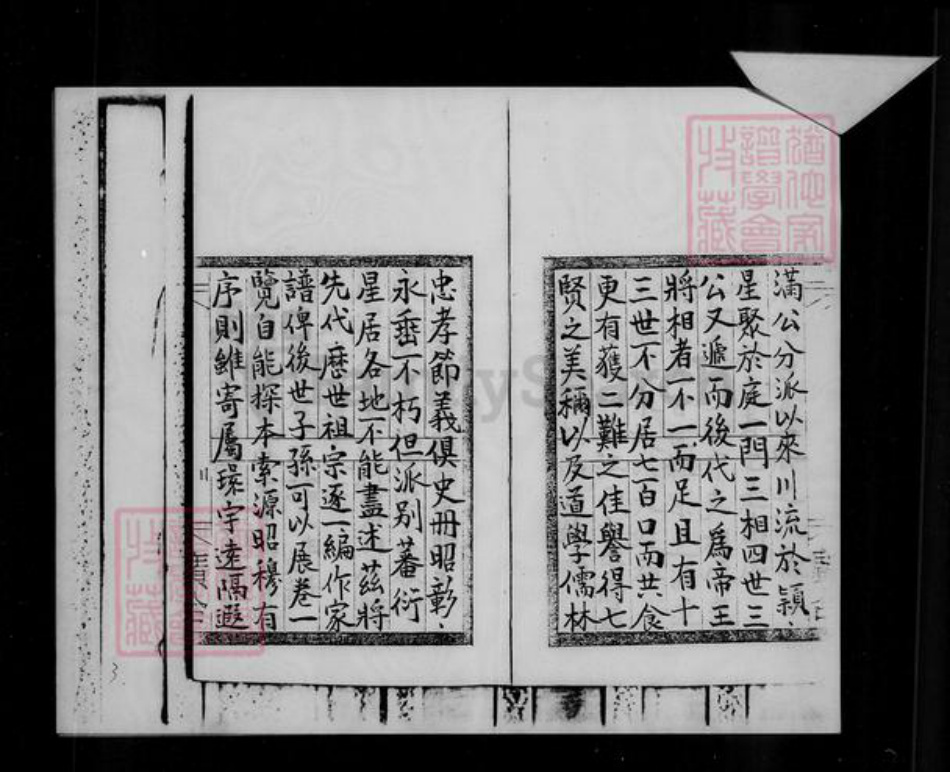 滿公分派以來川流於潁
星聚於庭一門三相四世三
公又遞而後代之為帝王
將相者不一而足且有十
三世不分居七百口而共食
更有獲二難之佳譽得七
賢之美稱以及道學儒林
忠孝節義俱史冊昭彰
永垂不朽但派別蕃衍
星居各地不能盡述茲將
先代歷世祖宗逐一編作家
譜俾後世子孫可以展卷一
覽自能探本索源昭穆有
序則雖寄屬環宇遠隔遐
3